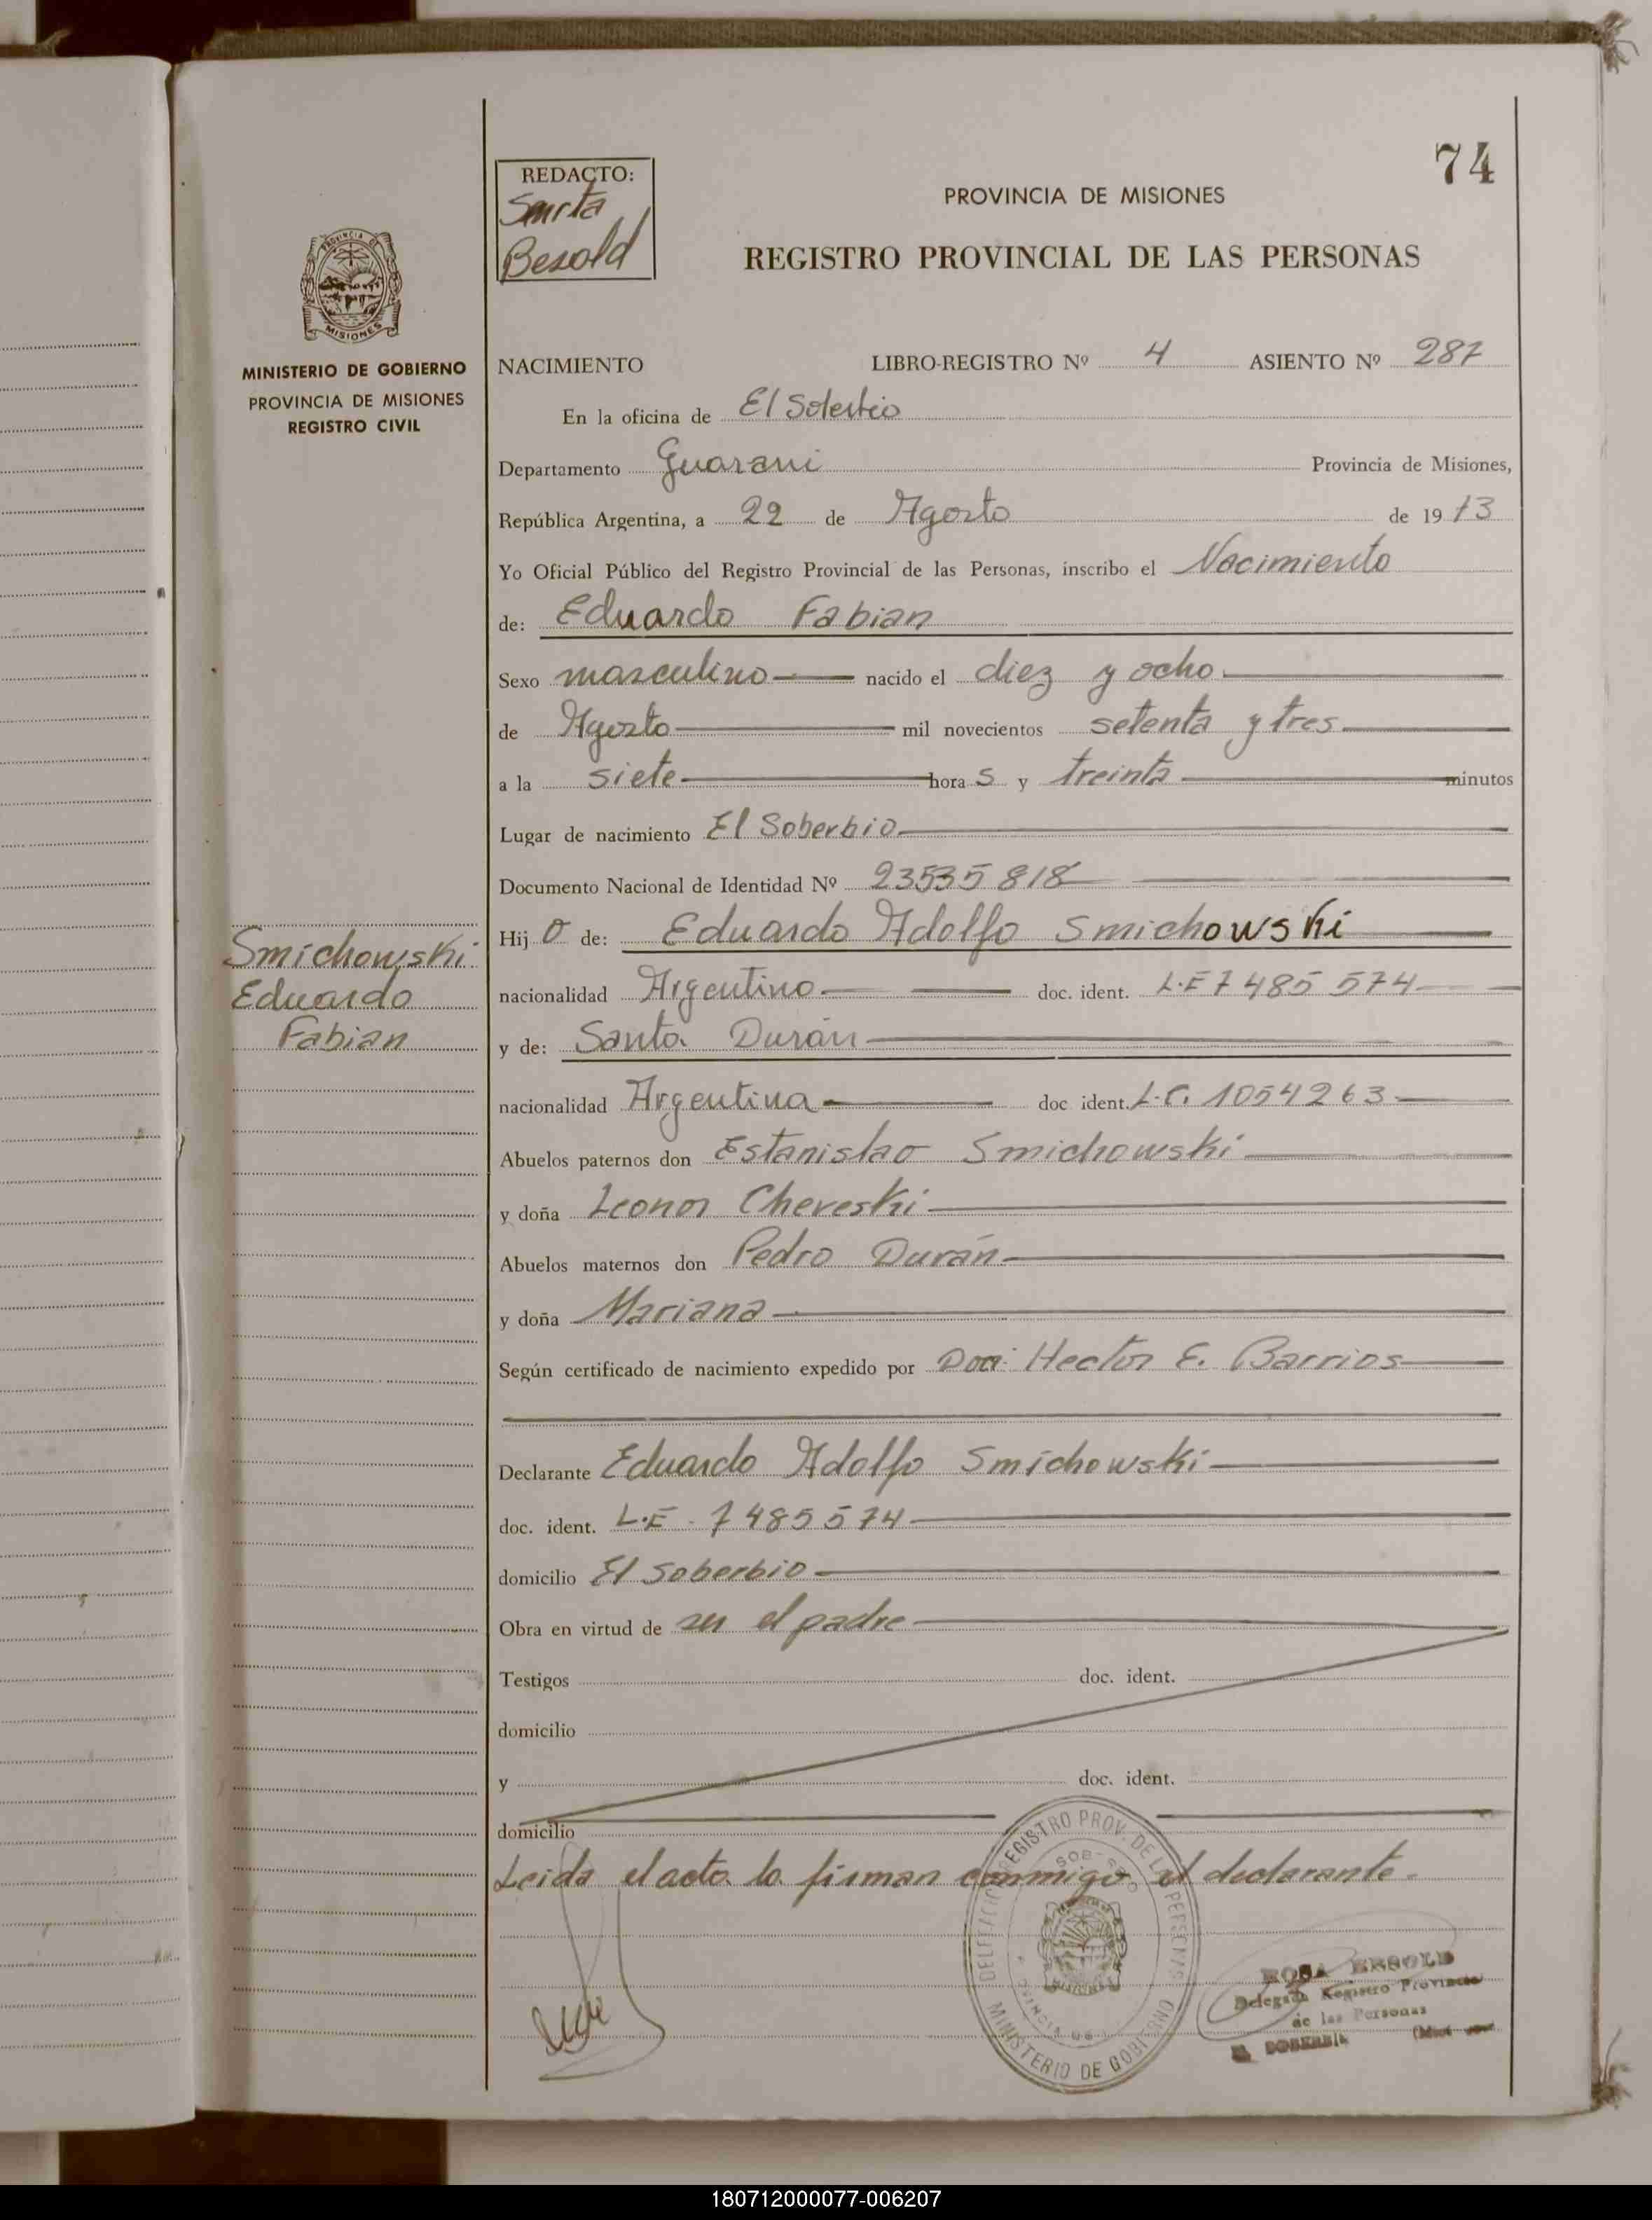 74
REDACTO:
Besold
PROVINCIA DE MISIONES
REGISTRO PROVINCIAL DE LAS PERSONAS
PROVINCIA DE
MISIONES
MINISTERIO DE GOBIERNO
PROVINCIA DE MISIONES
REGISTRO CIVIL
NACIMIENTO LIBRO-REGISTRO Nº 4 ASIENTO Nº 287
En la oficina de El Soberbio
Departamento Guarani Provincia de Misiones,
República Argentina, a 22 de Agosto de 19 73
Yo Oficial Público del Registro Provincial de las Personas, inscribo el Nacimiento
de: Eduardo Fabian
Sexo masculino nacido el diez y ocho
de Agosto mil novecientos setenta y tres
a la siete hora s y treinta minutos
Lugar de nacimiento El Soberbio
Documento Nacional de Identidad Nº 23535818
Hij o de: Eduardo Adolfo Smichowski
nacionalidad Argentino doc. ident. L.E 7 485 574
y de: Santa Durán
nacionalidad Argentina doc ident. L.C. 1054263
Abuelos paternos don Estanislao Smichowski
y doña Leonor Chereski
Abuelos maternos don Pedro Durán
y doña Mariana
Según certificado de nacimiento expedido por Hector E. Barrios
Declarante Eduardo Adolfo Smichowski
doc. ident. L.E. 7485574
domicilio El Soberbio
Obra en virtud de ser el padre
Testigos doc. ident.
domicilio
y doc. ident.
domicilio
Leida el acta la firman conmigo el declarante.
Smichowski
Eduardo
Fabian
DELEGACION REGISTRO PROV. DE LAS PERSONAS
MINISTERIO DE GOBIERNO
ROSA BESOLD
Delegada Registro Provincial
de las Personas
EL SOBERBIO
180712000077-006207